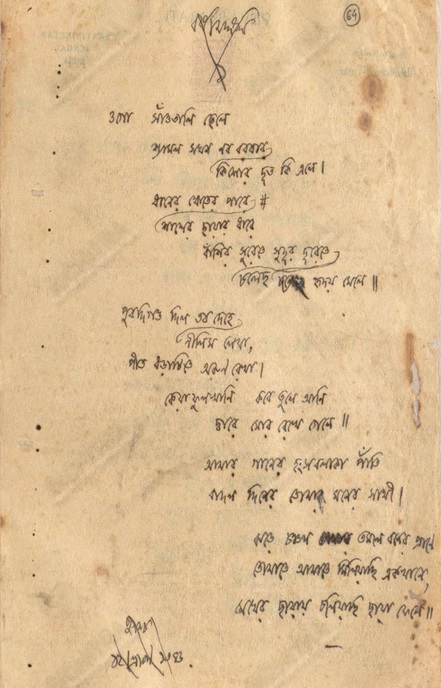 64
ওগো সাঁওতালি ছেলে
শ্যামল সঘন নব বরষার
কিশোর দূত কি এলে।
ধানের ক্ষেতের পারে
শালের ছায়ার ধারে
বাঁশির সুরেতে সুদূর দূরেতে
চলেছ হৃদয় মেলে॥
পুবদিগন্ত দিল তব দেহে
নীলিম লেখা,
পীত ধড়াটিতে অরুণ রেখা।
কেয়াফুলখানি কবে তুলে আনি
দ্বারে মোর রেখে গেলে॥
আমার গানের হংসবলাকা পাঁতি
বাদল দিনের তোমার মনের সাথী।
ঝড়ে চঞ্চল তমাল বনের প্রাণে
তোমাতে আমাতে মিলিয়াছি একখানে,
মেঘের ছায়ায় চলিয়াছি ছায়া ফেলে॥